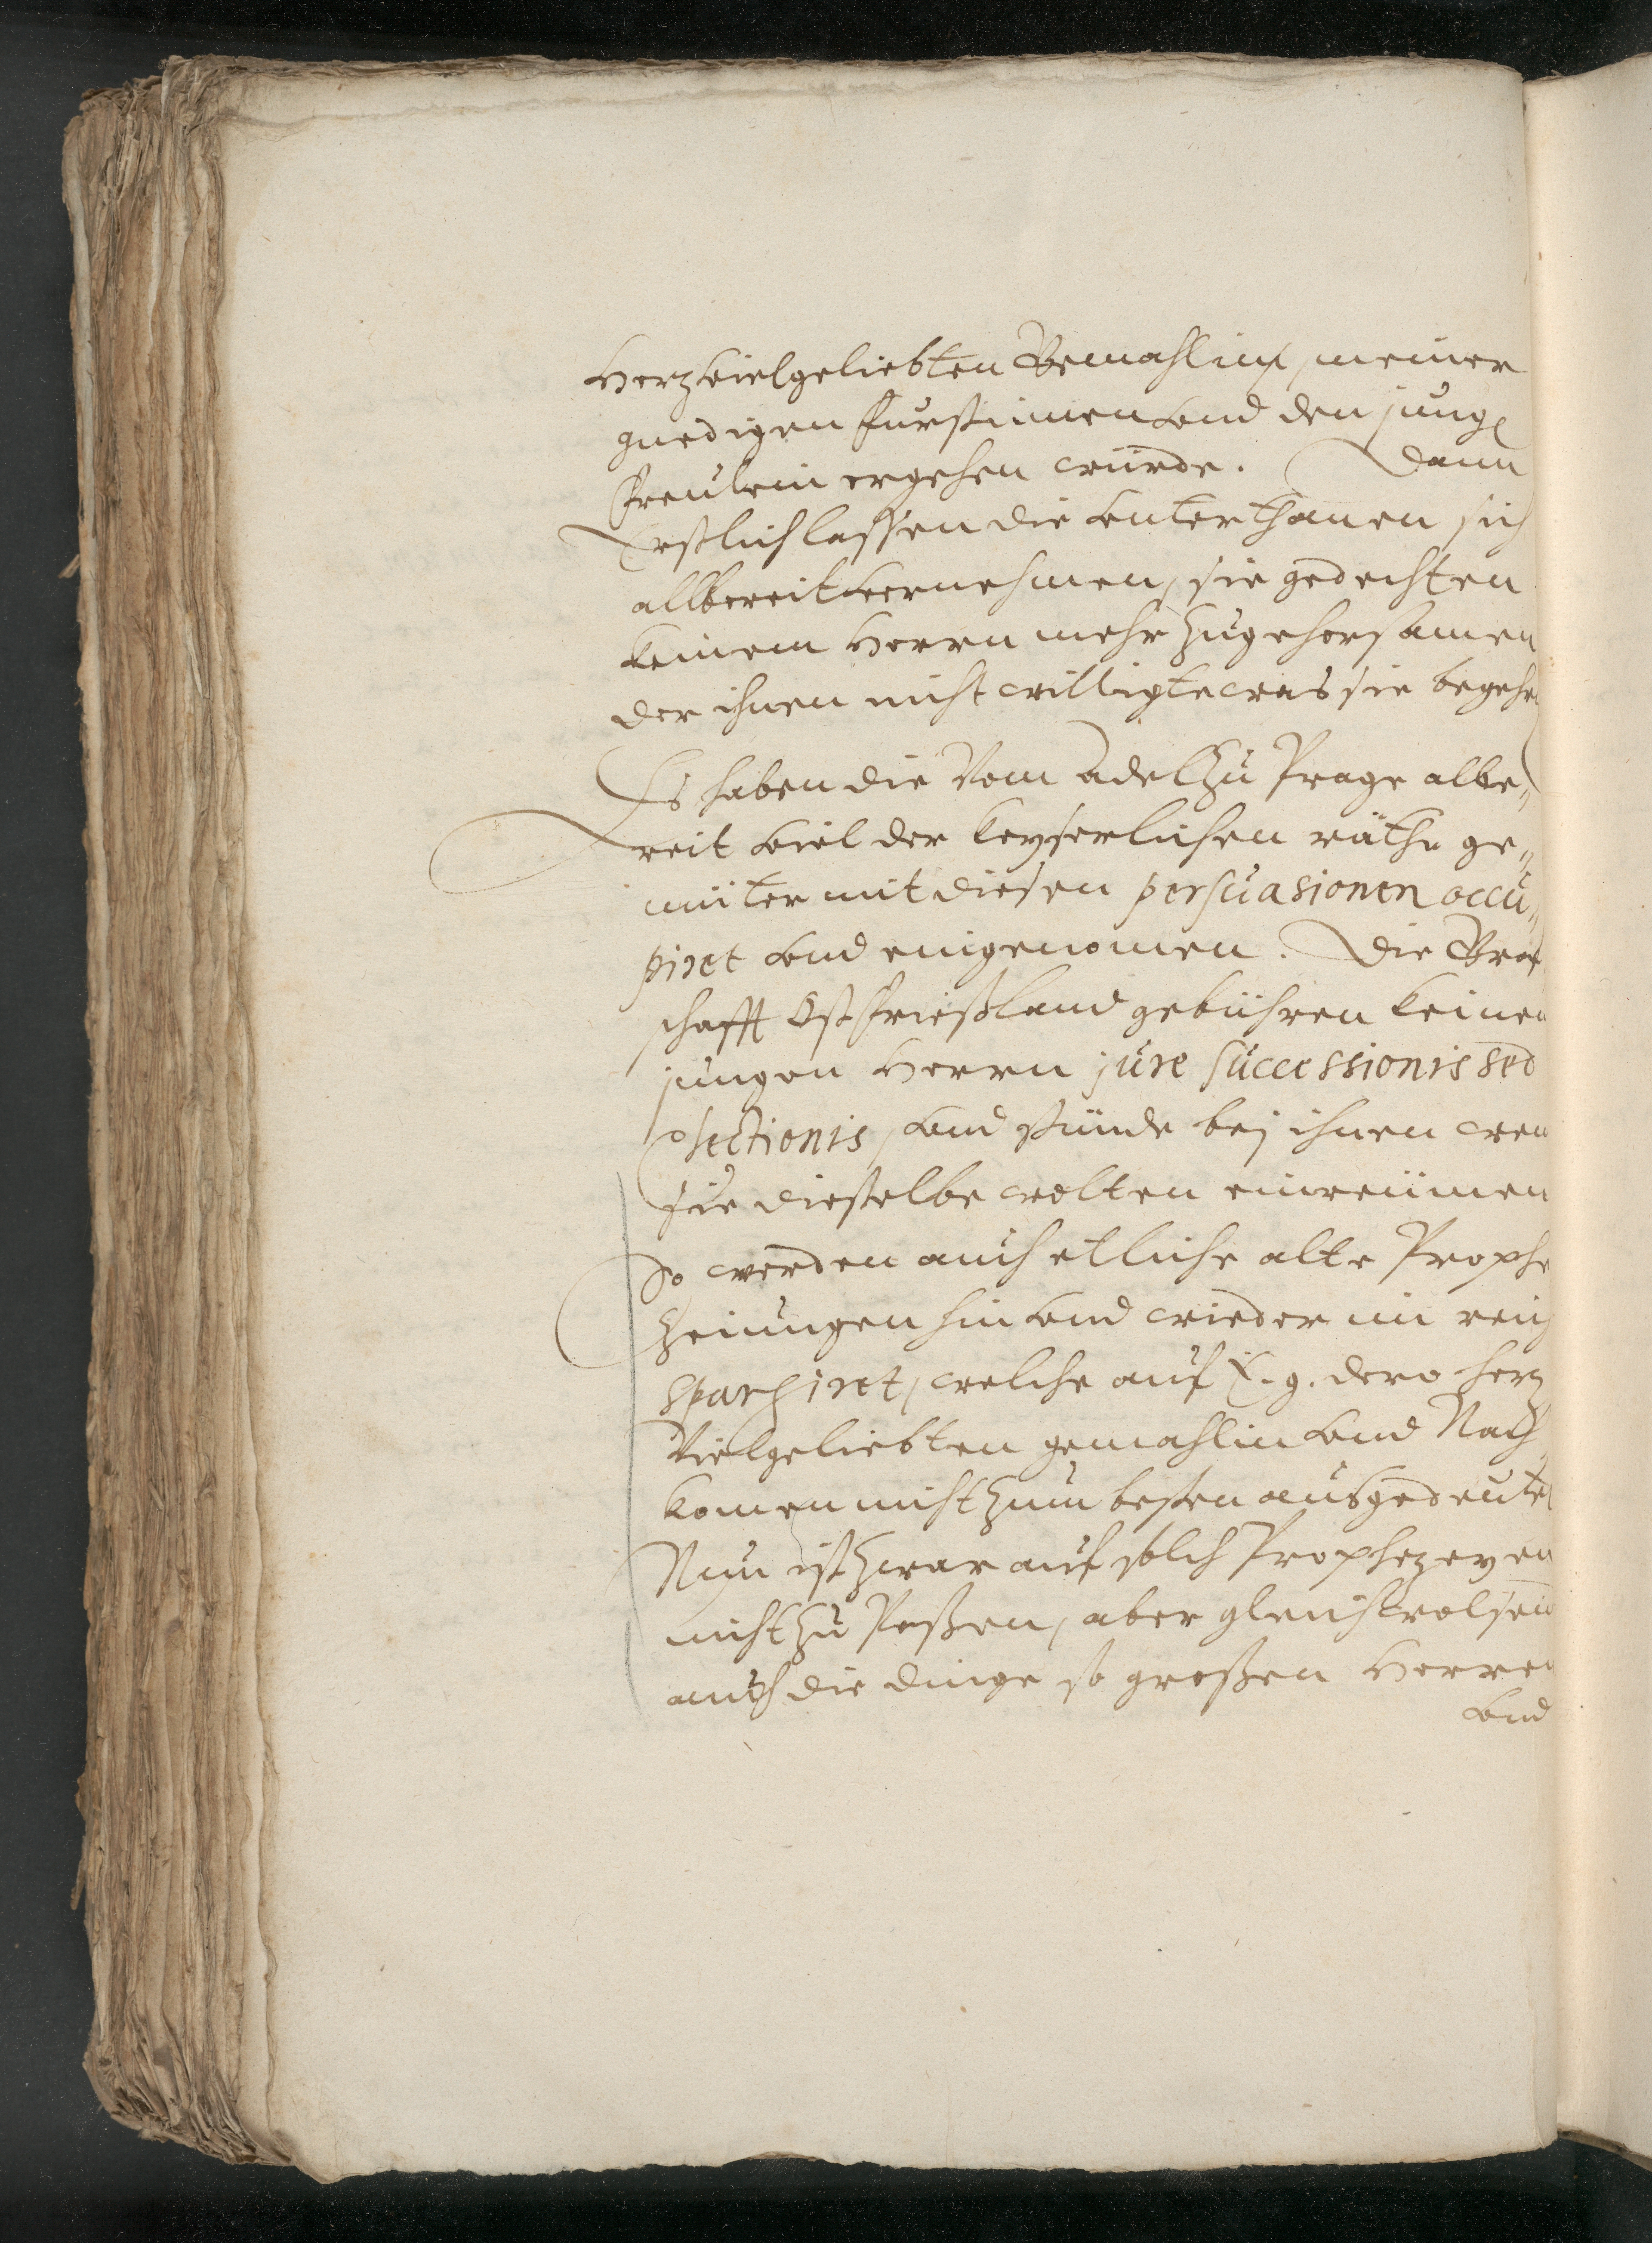 Herzvielgeliebten Gemahlin, meiner
gnedigen Furstinnen vnd den jung
Freulein ergehen würde. Dann
Erstlich lassen die vnterthanen sich
allbereit vernehmen, sie gedechten
keinem Herrn mehr zugehorsamen
der ihnen nicht willigte was sie begehr
Es haben die Vom Adel zu Prage albe„
reit viel der keyserlichen räthe ge„
müter mit diesen persuasionen occu„
piret vnd eingenomen. Die Graf
schafft Ostfrießland gebühren keinen
jungen Herrn jure successionis sed
electionis, vnd stünde bej ihnen wen
sie dieselbe wolten einreümen
So werden auch etliche alte Prophe
zeiungen hin vnd wieder im reich
spargiret, welche auf E. g. dero herz
Vielgeliebten gemahlin vnd Nach
komen nicht zum besten ausgedeutet
Nun ist zwar auf solch Prophezeyen
nicht zu Paßen, aber gleichwol sein
auch die dinge so großen Herren
vnd